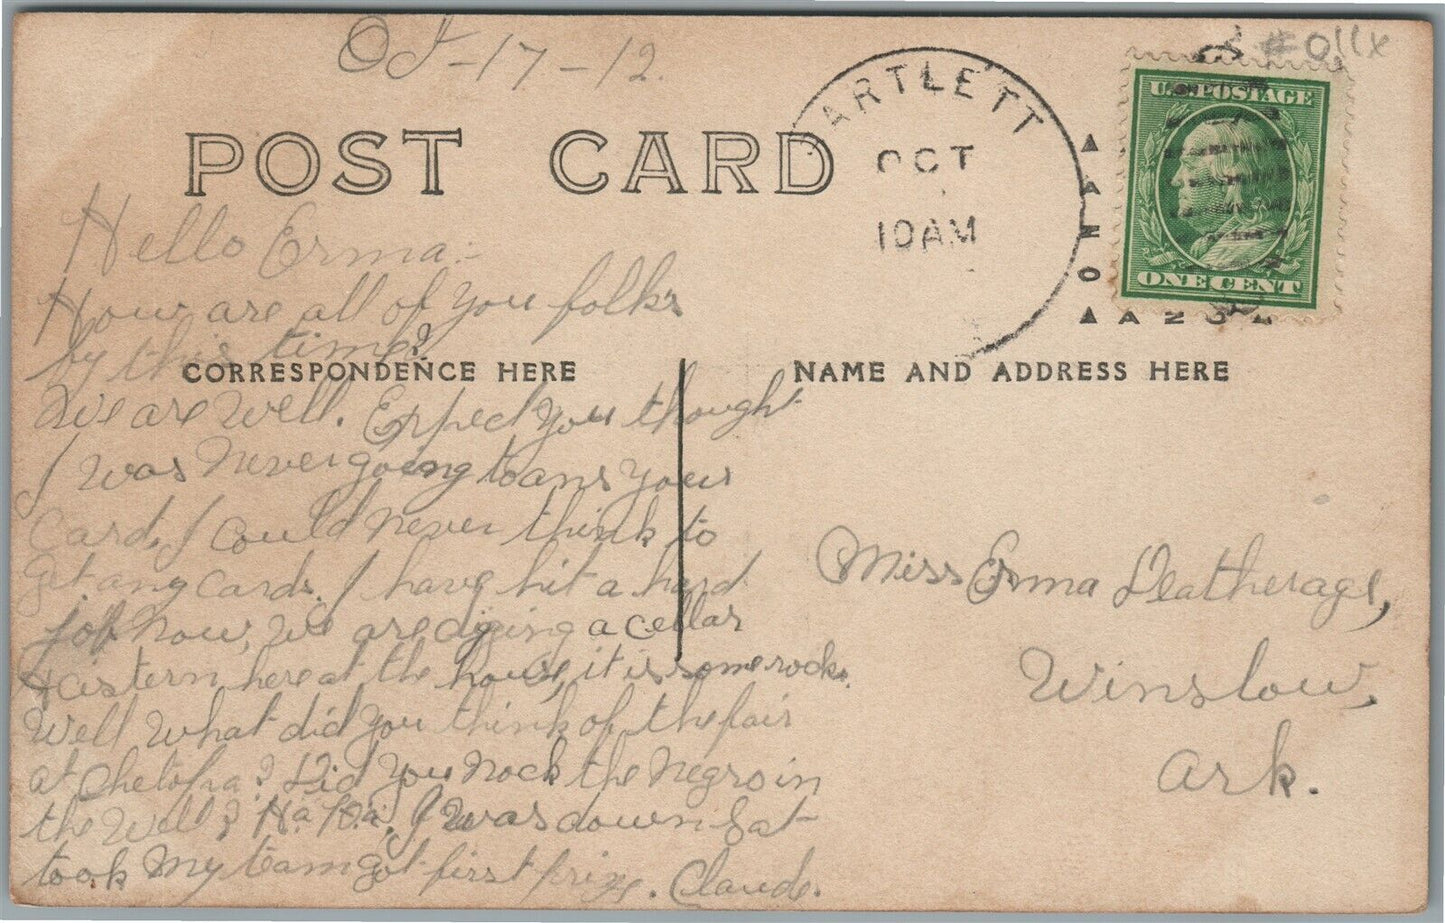 Oct-17-12.
#011x
POST CARD
BARTLETT
OCT
10AM
KANS.
U.S. POSTAGE
ONE CENT
Hello Erma:-
How are all of you folks
by this time?
CORRESPONDENCE HERE
NAME AND ADDRESS HERE
We are well. Expect you thought
I was never going to ans your
card, I could never think to
get any cards. I have hit a hard
job now, we are digging a cellar
& cistern here at the house, it is some rock.
Well what did you think of the fair
at Chetopa? Did you nock the negro in
the well? Ha. Ha. I was down Sat
took my team got first prize. Claude.
Miss Erma Deatherage,
Winslow,
Ark.